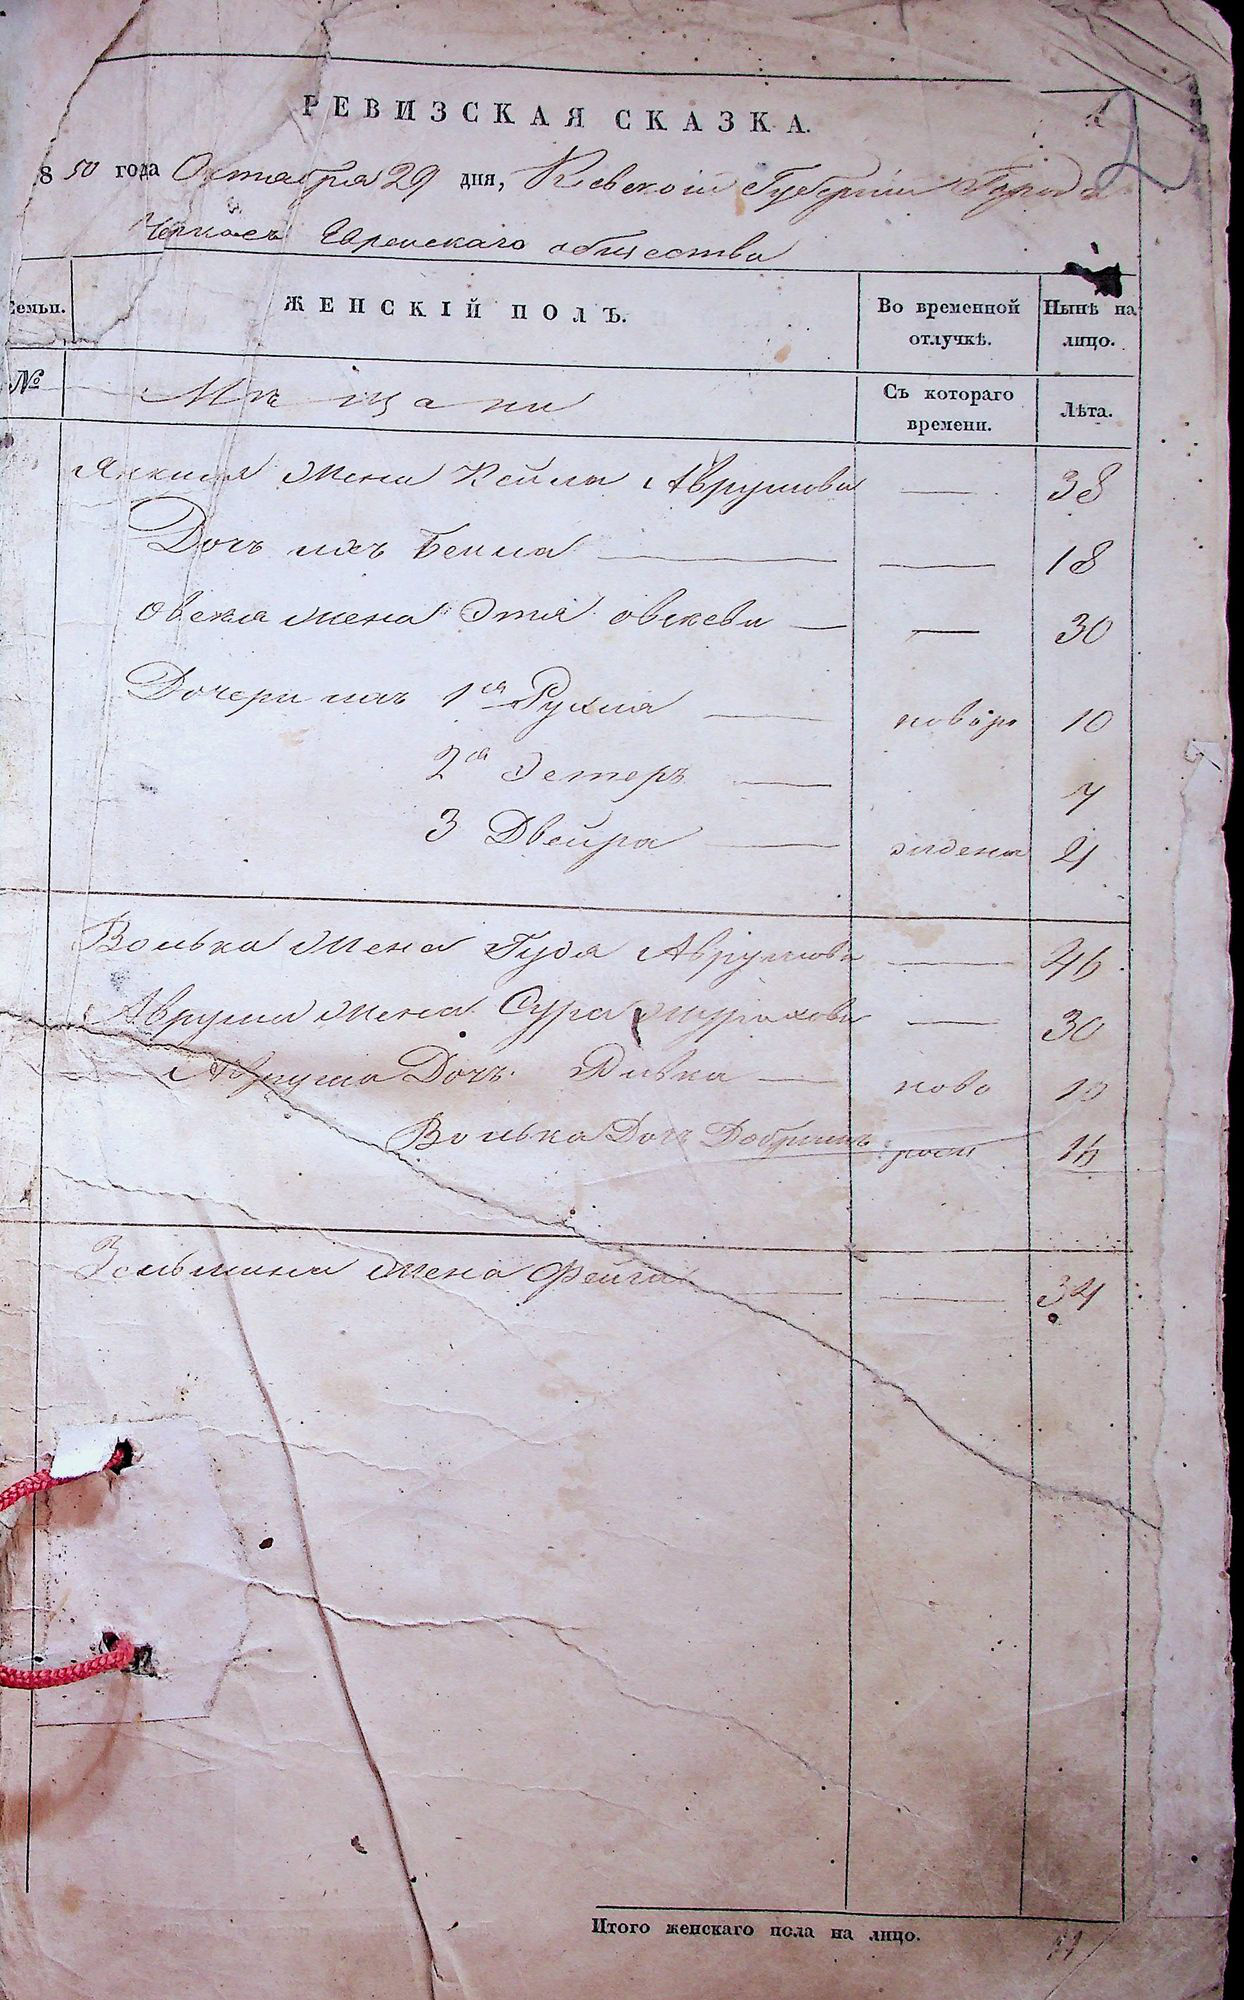 РЕВИЗСКАЯ СКАЗКА.
8 50 года Октября 29 дня, Киевской Губернии Города
Черкасъ Еврейскаго общества
Семьи. ЖЕНСКІЙ ПОЛЪ. Во временной отлучкѣ. Нынѣ на лицо.
№ Мѣщани Съ котораго времени. Лѣта.
Янкиля жена Кейла Аврумова — 38
Дочь ихъ Бейла — — 18
Овсея жена Этя Овсеева — — 30
Дочери ихъ 1ая Рухля — 10
2ая Эстеръ — 7
3 Двейра — 4
Волька жена Гудя Аврумова — 46
Аврума жена Сура — 30
Аврума Дочь Ривка — ново 10
Волька Дочь 16
Зельмана жена Фейга — — 34
Итого женскаго пола на лицо. 11